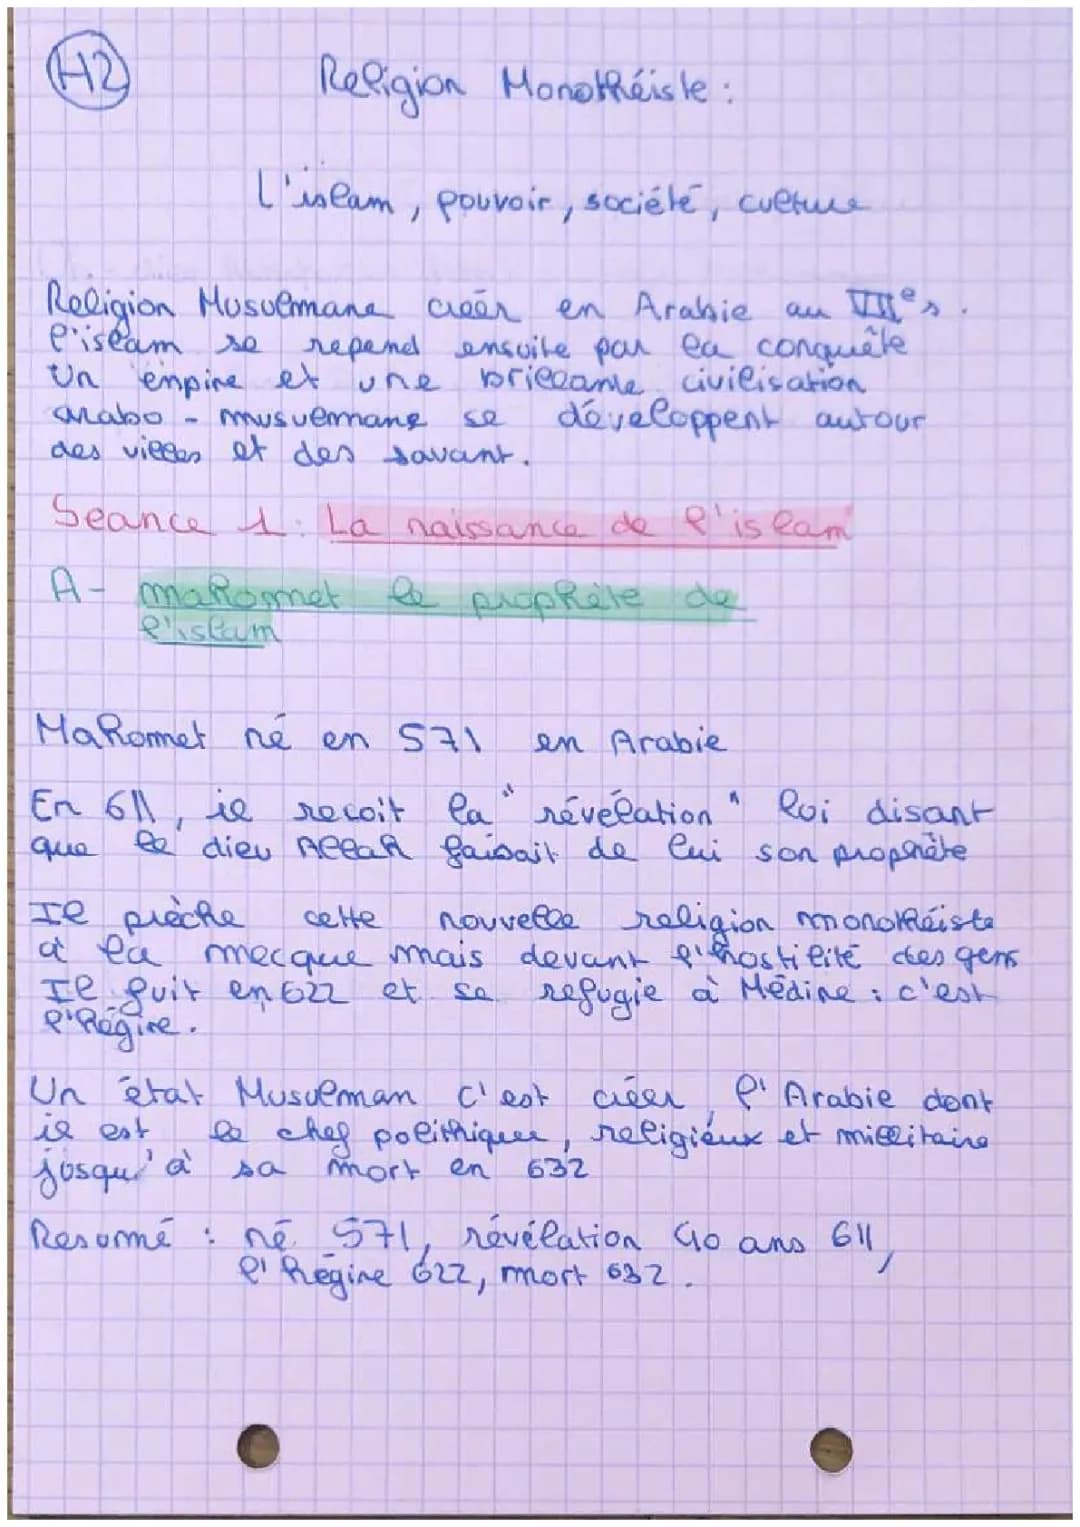 H2
Religion Monothéiste :
L'islam, pouvoir, société, culture
Religion Musulmane créer en Arabie au VIIe s.
l'islam se repend ensuite par la conquête
Un empire et une brillante civilisation
arabo - musulmane se développent autour
des villes et des savant.
Seance 1 : La naissance de l'islam
A - mahomet le prophète de
l'islam
Mahomet né en 571 en Arabie
En 611, il recoit la "révélation" lui disant
que le dieu Allah faisait de lui son prophète
Il prèche cette nouvelle religion monothéiste
à la mecque mais devant l'hostilité des gens
Il fuit en 622 et se refugie à Médine : c'est
l'hégire.
Un état Musulman c'est créer, l'Arabie dont
il est le chef polithiquer, religiéux et millitaire
jusqu'à sa mort en 632
Resumé : né 571, révélation 40 ans 611,
l'hégire 622, mort 632.